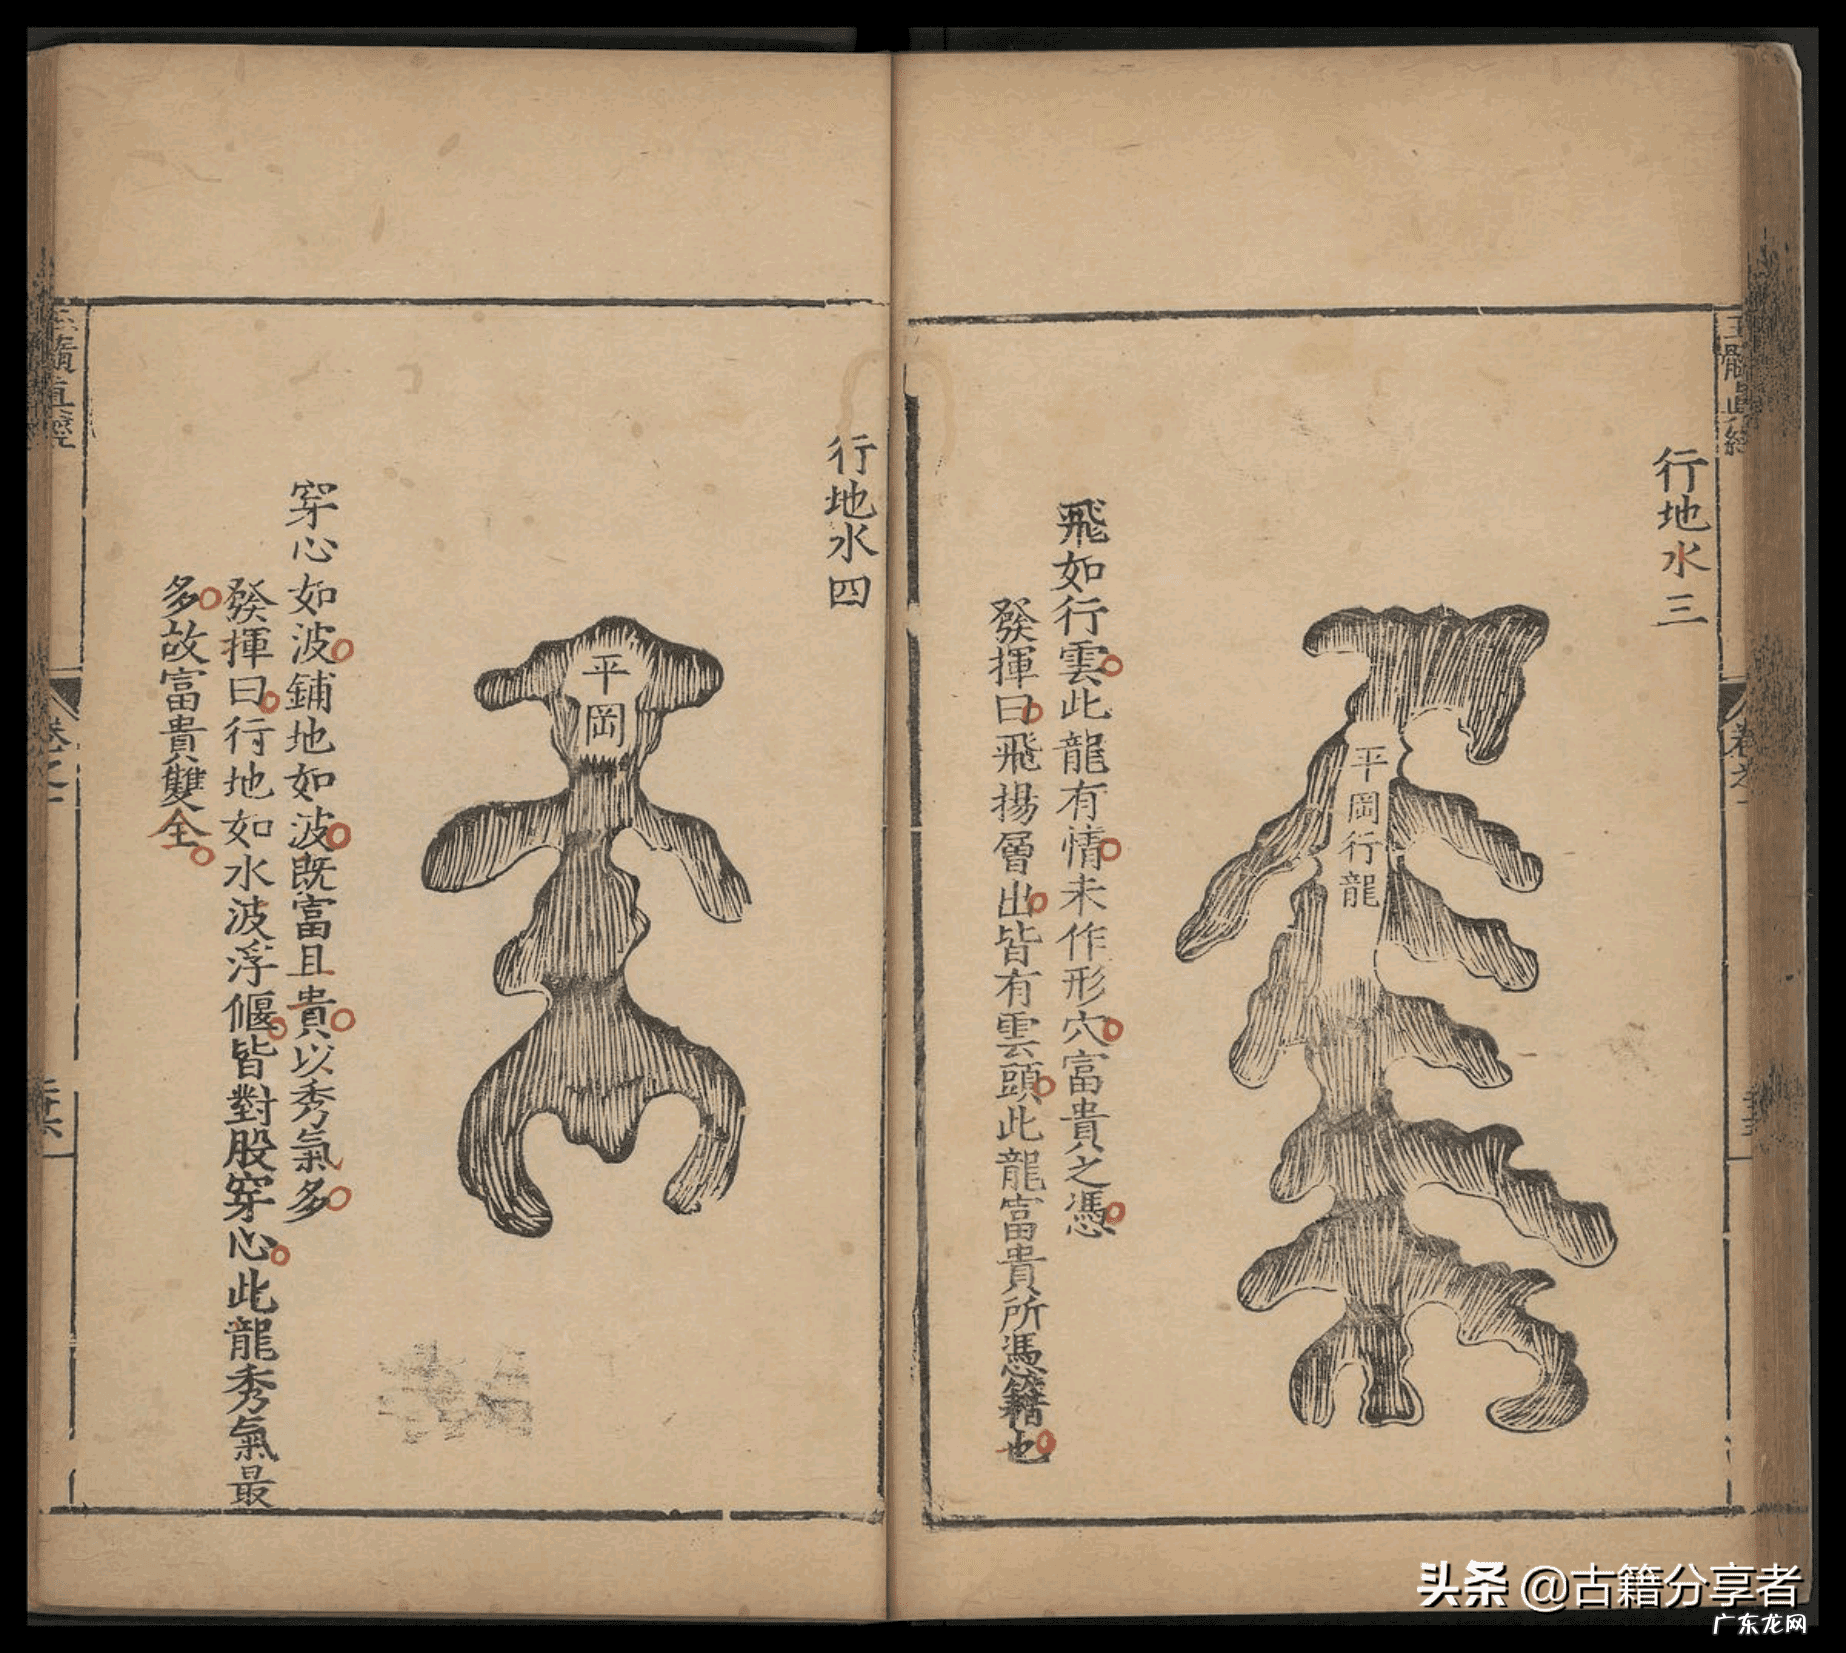 行地水三
平岡行龍
飛如行雲此龍有情未作形穴富貴之憑
發揮曰飛揚層出皆有雲頭此龍富貴所憑籍也
行地水四
平岡
穿心如波鋪地如波既富且貴以秀氣多
發揮曰行地如水波浮偃皆對股穿心此龍秀氣最
多故富貴雙全
玉髓真經
卷之
头条 @古籍分享者
广东龙网